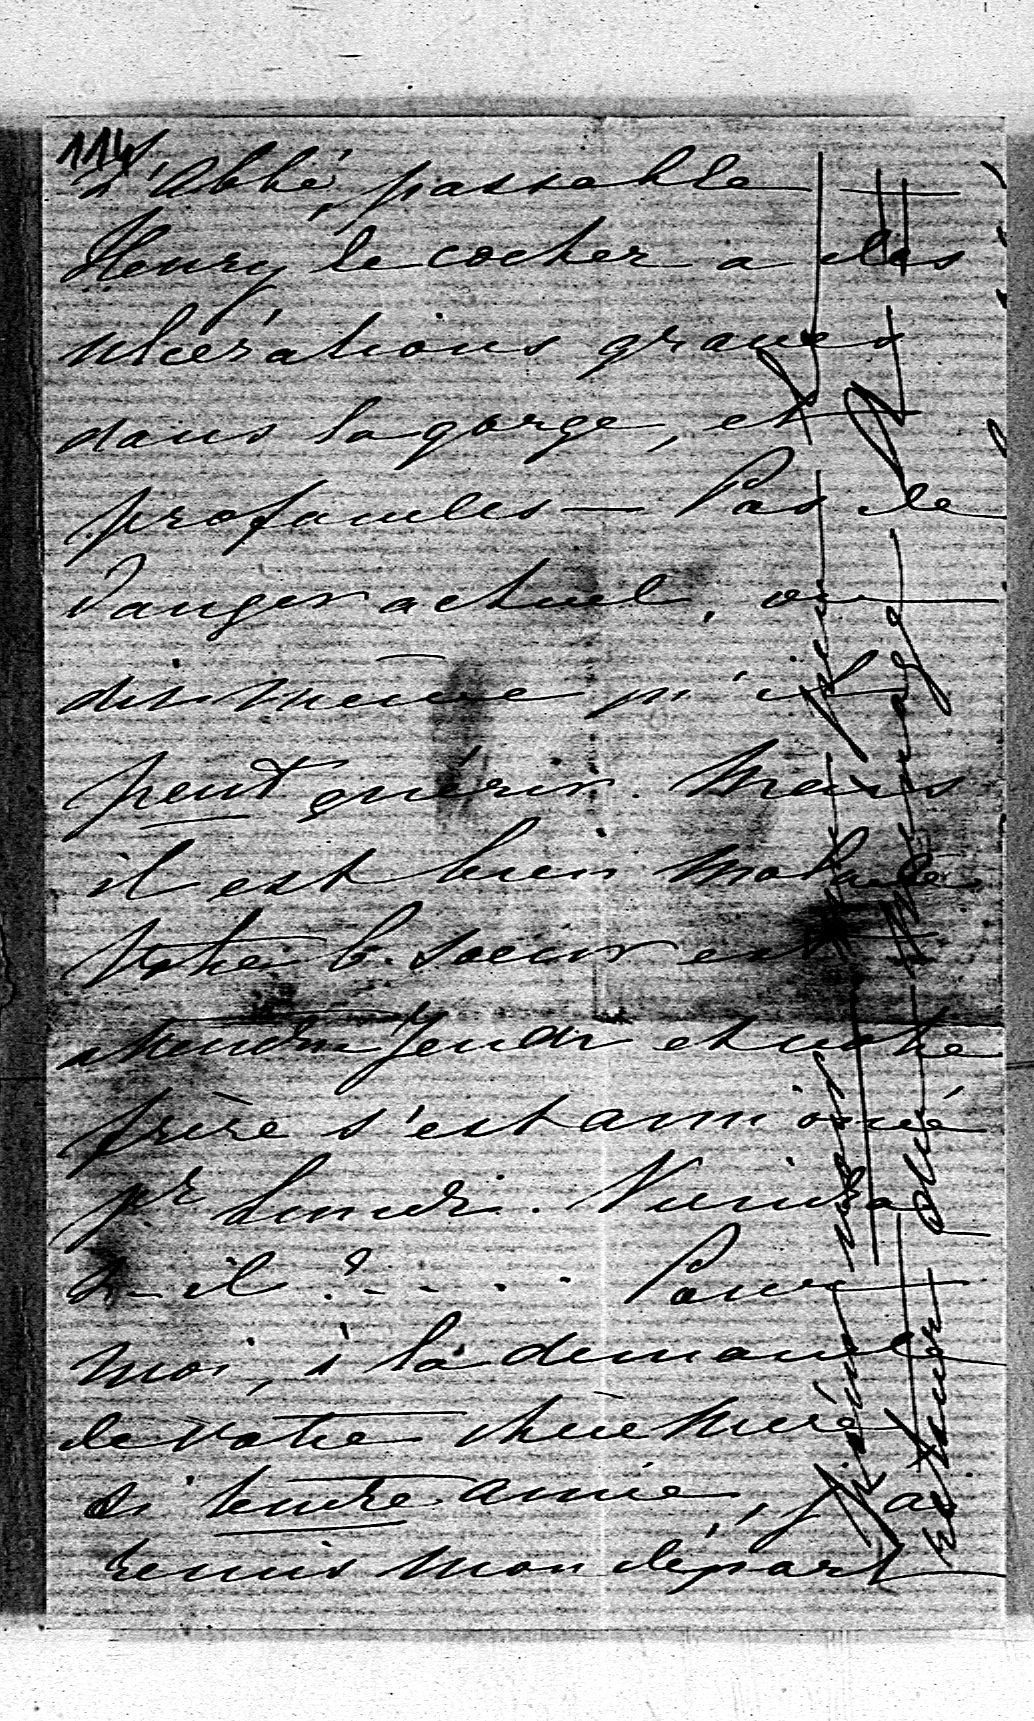 114
L'abbé, passable —
Henry le cocher a des
ulcérations graves
dans la gorge, et
profondes — Pas de
danger actuel, on
dit même qu'il
peut guérir. Mais
il est bien malade
Votre b. soeur est
attendue Jeudi et votre
frère s'est annoncé
pr Lundi. Viendra
t-il ? - - . . Pour
moi, à la demande
de votre chère mère
si tendre amie, j'ai
remis mon départ